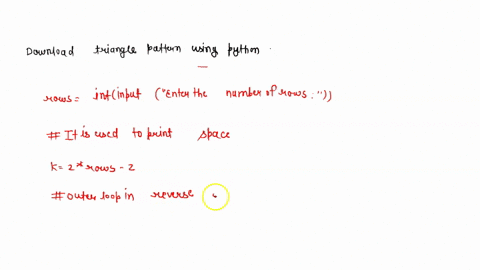 Download triangle pattern using python.
rows= int(input ("Enter the number of rows: "))
# It is used to print space
k= 2*rows-2
# outer loop in reverse